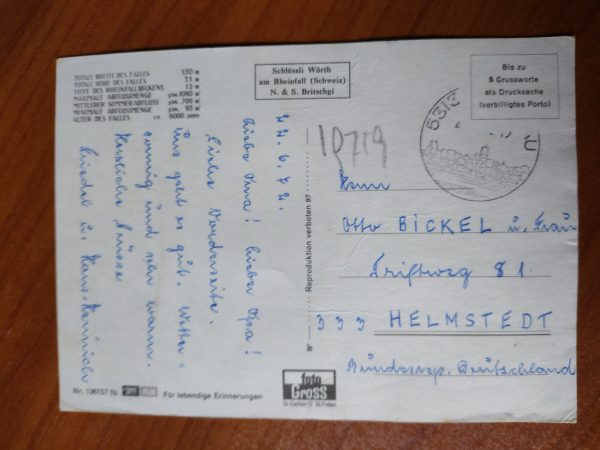 TOTALE BREITE DES FALLES 150 m
TOTALE HÖHE DES FALLES 21 m
TIEFE DES RHEINFALLBECKENS 13 m
MAXIMALE ABFLUSSMENGE p/sec. 1080 m³
MITTLERER SOMMERABFLUSS p/sec. 700 m³
MINIMALE ABFLUSSMENGE p/sec. 95 m³
ALTER DES FALLES ca. 6000 Jahre
Schlössli Wörth
am Rheinfall (Schweiz)
N. & S. Britschgi
Bis zu
5 Grussworte
als Drucksache
(verbilligtes Porto)
5312
22.6.72.
Liebe Oma! Lieber Opa!
Siehe Vorderseite.
Uns geht es gut. Wetter:
sonnig und sehr warm.
Herzliche Grüsse
Friedel u. Hans-Heinrich
19719
Reproduktion verboten 87
Herrn
Otto BICKEL u. Frau
Triftweg 81
333 HELMSTEDT
Bundesrep. Deutschland
Nr. 136157 fb
Für lebendige Erinnerungen
foto
GROSS
St.Gallen O St.Fiden